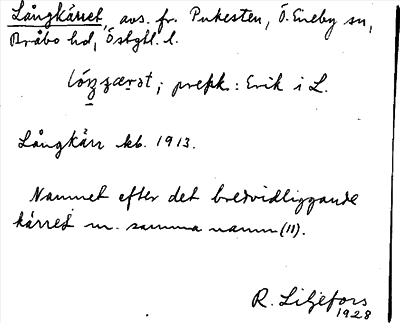 Långkärret, avs. fr. Pukesten, Ö. Eneby sn,
Bråbo hd, Östgtl. l.
prepk.: Erik i L.
Långkärr kb. 1913.
Namnet efter det bredvidliggande
kärret m. samma namn (11).
R. Liljefors
1928